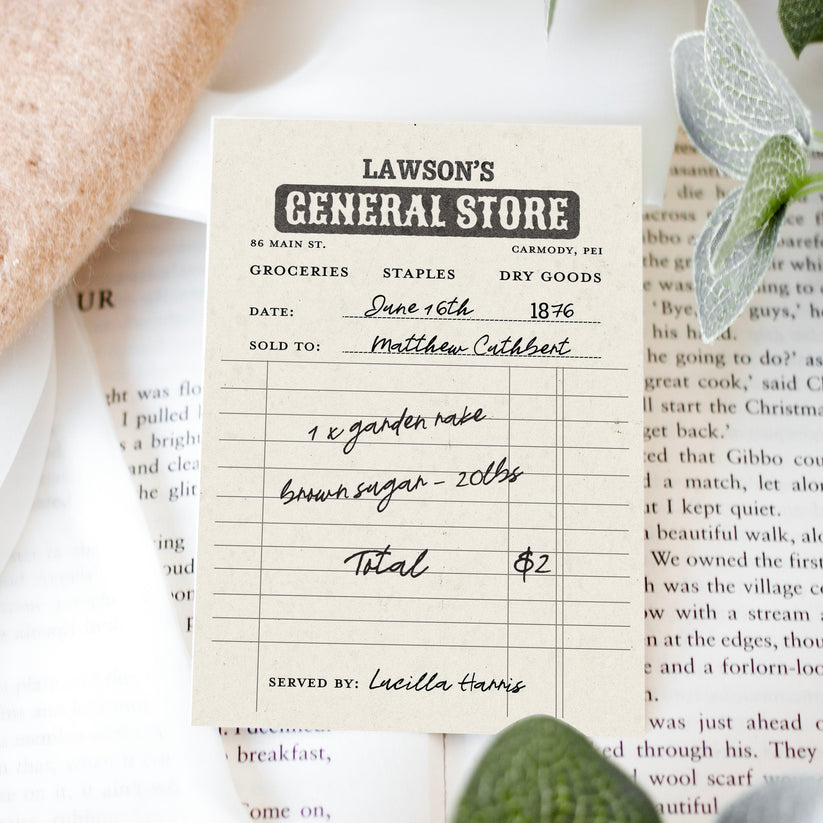 LAWSON'S
GENERAL STORE
86 MAIN ST. CARMODY, PEI
GROCERIES STAPLES DRY GOODS
DATE: June 16th 1876
SOLD TO: Matthew Cuthbert
1 x garden rake
brown sugar - 20lbs
Total $2
SERVED BY: Lucilla Harris
UR
ght was flo
I pulled
s a brigh
and clea
he glit
breakfast,
ome on,
die h
across
'Bye, guys,' he
his h d.
he going to do?' as
great cook,' said C
ll start the Christma
get back.'
ed that Gibbo cou
d a match, let alon
ut I kept quiet.
a beautiful walk, alo
We owned the first
h was the village c
ow with a stream a
n at the edges, thou
e and a forlorn-loo
was just ahead o
ed through his. They
wool scarf
autiful